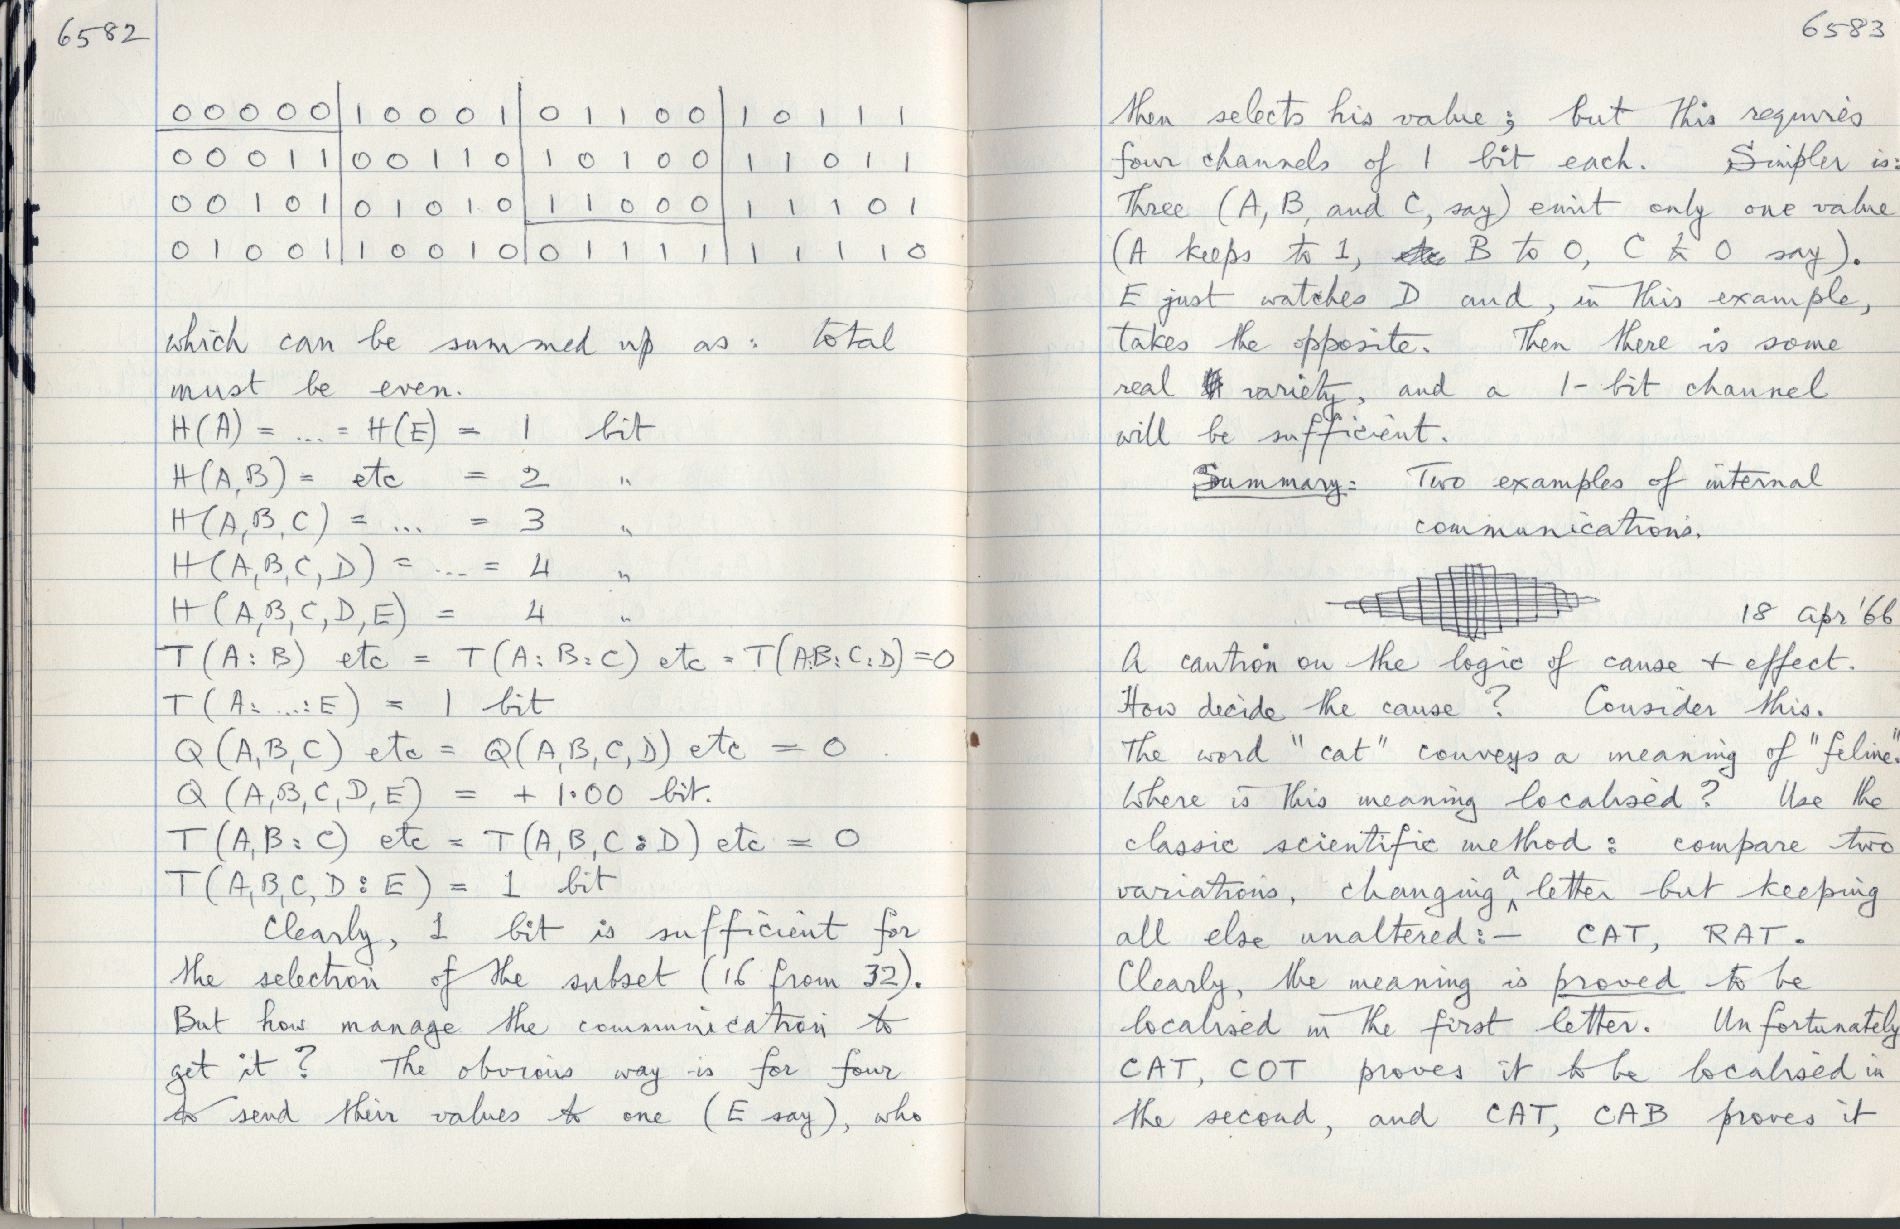 6582
0 0 0 0 0 | 1 0 0 0 1 | 0 1 1 0 0 | 1 0 1 1 1
0 0 0 1 1 | 0 0 1 1 0 | 1 0 1 0 0 | 1 1 0 1 1
0 0 1 0 1 | 0 1 0 1 0 | 1 1 0 0 0 | 1 1 1 0 1
0 1 0 0 1 | 1 0 0 1 0 | 0 1 1 1 1 | 1 1 1 1 0
which can be summed up as: total
must be even.
H(A) = ... = H(E) = 1 bit
H(A,B) = etc = 2 "
H(A,B,C) = ... = 3 "
H(A,B,C,D) = ... = 4 "
H(A,B,C,D,E) = 4 "
T(A:B) etc = T(A:B:C) etc = T(A:B:C:D) = 0
T(A: ...:E) = 1 bit
Q(A,B,C) etc = Q(A,B,C,D) etc = 0
Q(A,B,C,D,E) = + 1.00 bit.
T(A,B:C) etc = T(A,B,C:D) etc = 0
T(A,B,C,D:E) = 1 bit
Clearly, 1 bit is sufficient for
the selection of the subset (16 from 32).
But how manage the communication to
get it? The obvious way is for four
to send their values to one (E say), who
6583
then selects his value; but this requires
four channels of 1 bit each. Simpler is:
Three (A, B, and C, say) emit only one value
(A keeps to 1, B to 0, C to 0 say).
E just watches D and, in this example,
takes the opposite. Then there is some
real variety, and a 1-bit channel
will be sufficient.
Summary: Two examples of internal
communications.
18 Apr '66
A caution on the logic of cause + effect.
How decide the cause? Consider this.
The word "cat" conveys a meaning of "feline".
Where is this meaning localised? Use the
classic scientific method: compare two
variations, changing a letter but keeping
all else unaltered:— CAT, RAT.
Clearly, the meaning is proved to be
localised in the first letter. Unfortunately
CAT, COT proves it to be localised in
the second, and CAT, CAB proves it